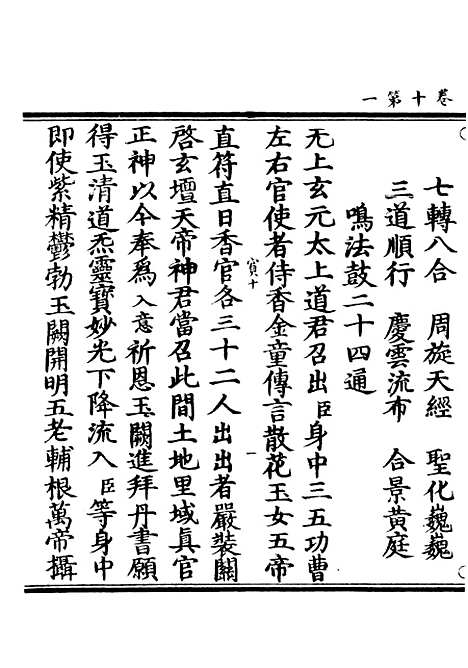 卷十第一
七轉八合　周旋天經　聖化巍巍
三道順行　慶雲流布　合景黃庭
鳴法鼓二十四通
无上玄元太上道君召出臣身中三五功曹
左右官使者侍香金童傳言散花玉女五帝
寳十　一
直符直日香官各三十二人出出者嚴裝關
啓玄壇天帝神君當召此間土地里域眞官
正神以今奉爲入意祈恩玉闕進拜丹書願
得玉清道炁靈寶妙光下降流入臣等身中
即使紫精鬱勃玉闕開明五老輔根萬帝攝